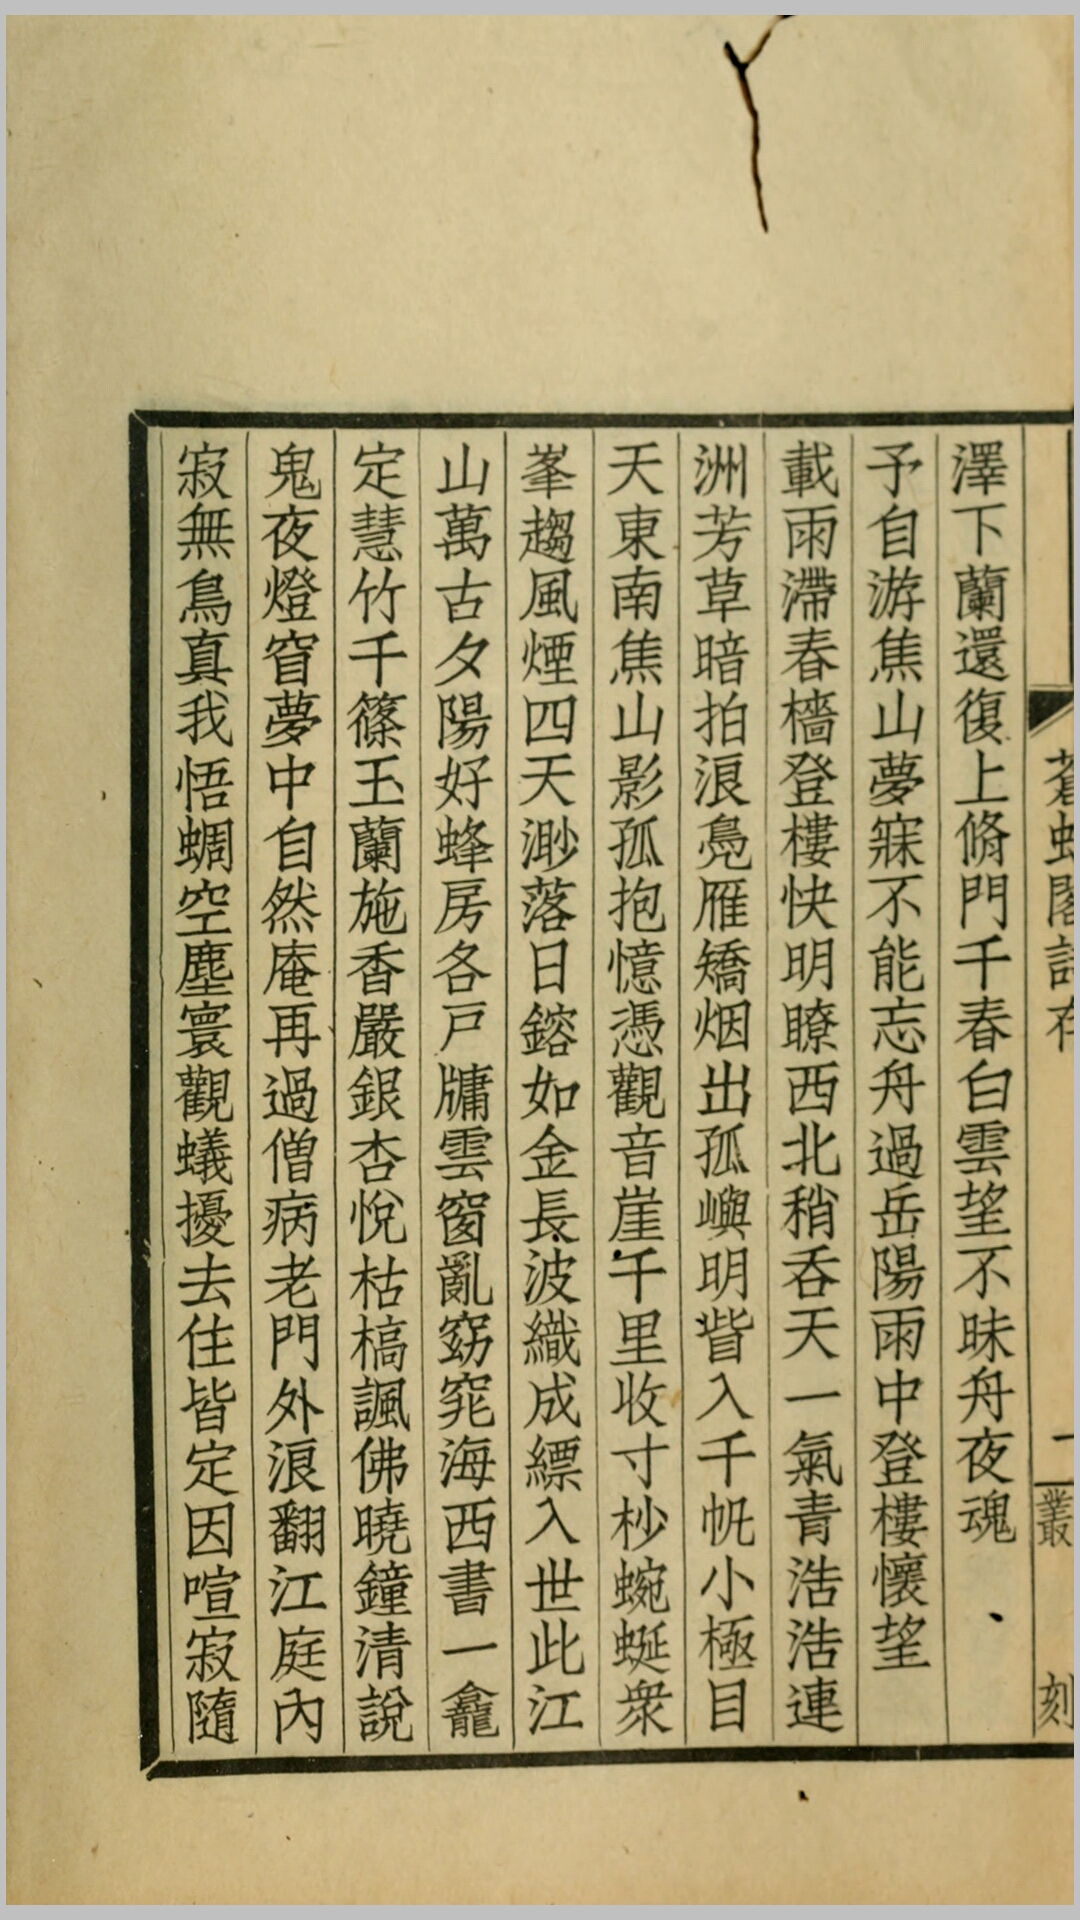 蒼虬閣詩存
一
叢刻
澤下蘭還復上脩門千春白雲望不昧舟夜魂
予自游焦山夢寐不能忘舟過岳陽雨中登樓懷望
載雨滯春檣登樓快明瞭西北稍吞天一氣青浩浩連
洲芳草暗拍浪鳧雁矯烟出孤嶼明眥入千帆小極目
天東南焦山影孤抱憶憑觀音崖千里收寸杪蜿蜒衆
峯趨風煙四天渺落日鎔如金長波織成縹入世此江
山萬古夕陽好蜂房各戸牗雲窗亂窈窕海西書一龕
定慧竹千篠玉蘭施香嚴銀杏悅枯槁諷佛曉鐘清說
鬼夜燈窅夢中自然庵再過僧病老門外浪翻江庭內
寂無鳥真我悟蜩空塵寰觀蟻擾去住皆定因喧寂隨